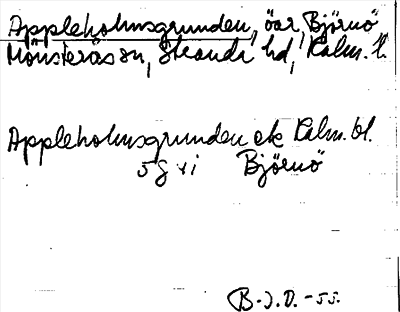 Appleholmsgrunden, öar, Björnö
Mönsterås sn, Stranda hd, Kalm. l.
Appleholmsgrunden ek Kalm. bl.
5 g vi Björnö
B-J.O. -55.